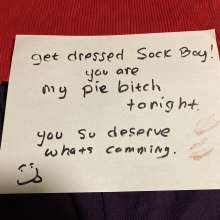 get dressed Sock Boy!
you are
my pie bitch
tonight.
you so deserve
whats comming.